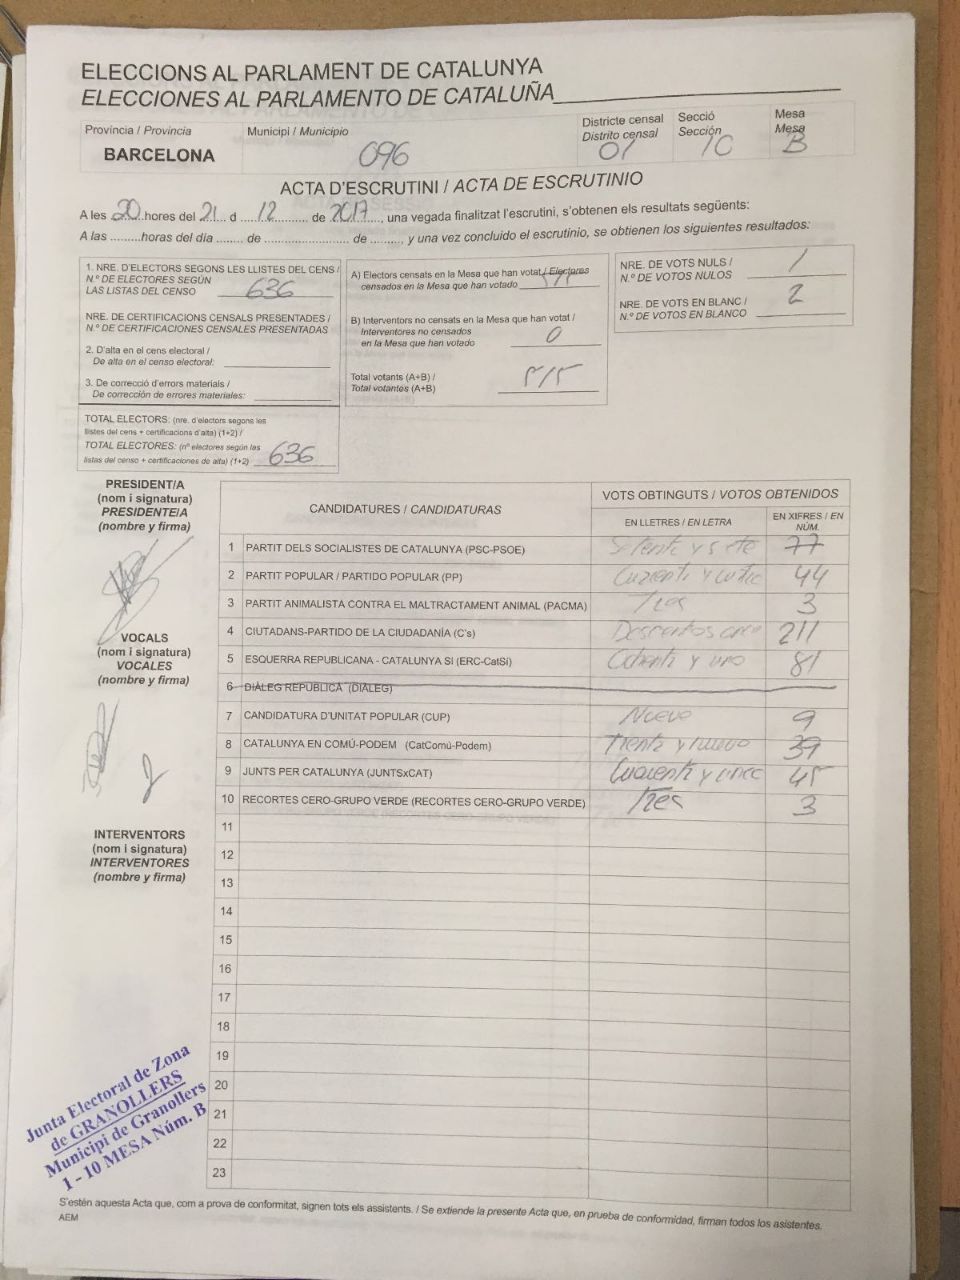 ELECCIONS AL PARLAMENT DE CATALUNYA
ELECCIONES AL PARLAMENTO DE CATALUÑA
Província / Provincia
BARCELONA
Municipi / Municipio
096
Districte censal
Distrito censal
01
Secció
Sección
10
Mesa
Mesa
B
ACTA D'ESCRUTINI / ACTA DE ESCRUTINIO
A les 20 hores del 21 d 12 de 2017, una vegada finalitzat l'escrutini, s'obtenen els resultats següents:
A las .........horas del día ....... de ........................ de ........., y una vez concluido el escrutinio, se obtienen los siguientes resultados:
1. NRE. D'ELECTORS SEGONS LES LLISTES DEL CENS /
N.º DE ELECTORES SEGÚN
LAS LISTAS DEL CENSO 636
NRE. DE CERTIFICACIONS CENSALS PRESENTADES /
N.º DE CERTIFICACIONES CENSALES PRESENTADAS
2. D'alta en el cens electoral /
De alta en el censo electoral:
3. De correcció d'errors materials /
De corrección de errores materiales:
TOTAL ELECTORS: (nre. d'electors segons les
llistes del cens + certificacions d'alta) (1+2) /
TOTAL ELECTORES: (nº electores según las
listas del censo + certificaciones de alta) (1+2) 636
A) Electors censats en la Mesa que han votat / Electores
censados en la Mesa que han votado 515
B) Interventors no censats en la Mesa que han votat /
Interventores no censados
en la Mesa que han votado 0
Total votants (A+B) /
Total votantes (A+B) 515
NRE. DE VOTS NULS /
N.º DE VOTOS NULOS 1
NRE. DE VOTS EN BLANC /
N.º DE VOTOS EN BLANCO 2
PRESIDENT/A
(nom i signatura)
PRESIDENTE/A
(nombre y firma)
VOCALS
(nom i signatura)
VOCALES
(nombre y firma)
INTERVENTORS
(nom i signatura)
INTERVENTORES
(nombre y firma)
CANDIDATURES / CANDIDATURAS
VOTS OBTINGUTS / VOTOS OBTENIDOS
EN LLETRES / EN LETRA
EN XIFRES / EN NÚM.
1 PARTIT DELS SOCIALISTES DE CATALUNYA (PSC-PSOE) Setenta y siete 77
2 PARTIT POPULAR / PARTIDO POPULAR (PP) Cuarenta y cuatro 44
3 PARTIT ANIMALISTA CONTRA EL MALTRACTAMENT ANIMAL (PACMA) Tres 3
4 CIUTADANS-PARTIDO DE LA CIUDADANÍA (C's) Doscientos once 211
5 ESQUERRA REPUBLICANA - CATALUNYA SÍ (ERC-CatSí) Ochenta y uno 81
6 DIÀLEG REPUBLICÀ (DIÀLEG)
7 CANDIDATURA D'UNITAT POPULAR (CUP) Nueve 9
8 CATALUNYA EN COMÚ-PODEM (CatComú-Podem) Treinta y nueve 39
9 JUNTS PER CATALUNYA (JUNTSxCAT) Cuarenta y cinco 45
10 RECORTES CERO-GRUPO VERDE (RECORTES CERO-GRUPO VERDE) Tres 3
11
12
13
14
15
16
17
18
19
20
21
22
23
Junta Electoral de Zona
de GRANOLLERS
Municipi de Granollers
1 - 10 MESA Núm. B
S'estén aquesta Acta que, com a prova de conformitat, signen tots els assistents. / Se extiende la presente Acta que, en prueba de conformidad, firman todos los asistentes.
AEM